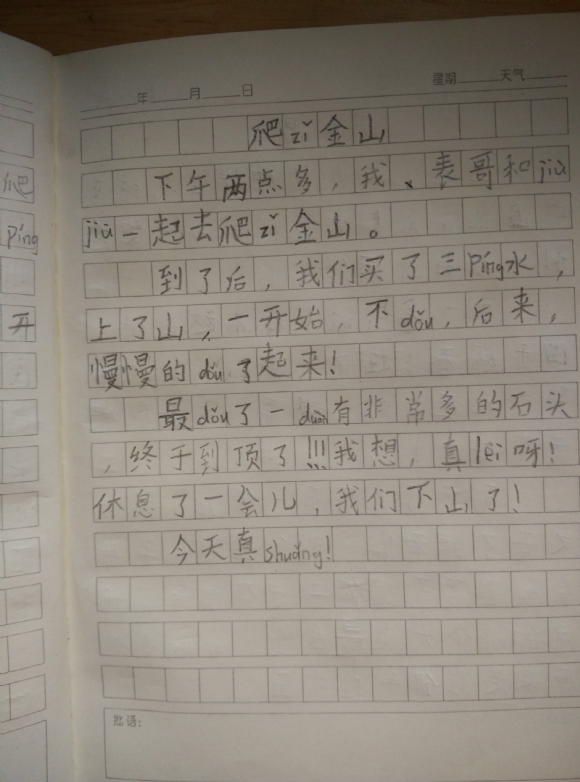 年 月 日 星期 天气
爬zǐ金山
下午两点多，我、表哥和jiù
jiu一起去爬zǐ金山。
到了后，我们买了三píng水，
上了山，一开始，不dǒu，后来，
慢慢的dǒu了起来！
最dǒu了一duàn有非常多的石头
，终于到顶了!!!我想，真lèi呀！
休息了一会儿，我们下山了！
今天真shuǎng！
批语：
爬
píng
开